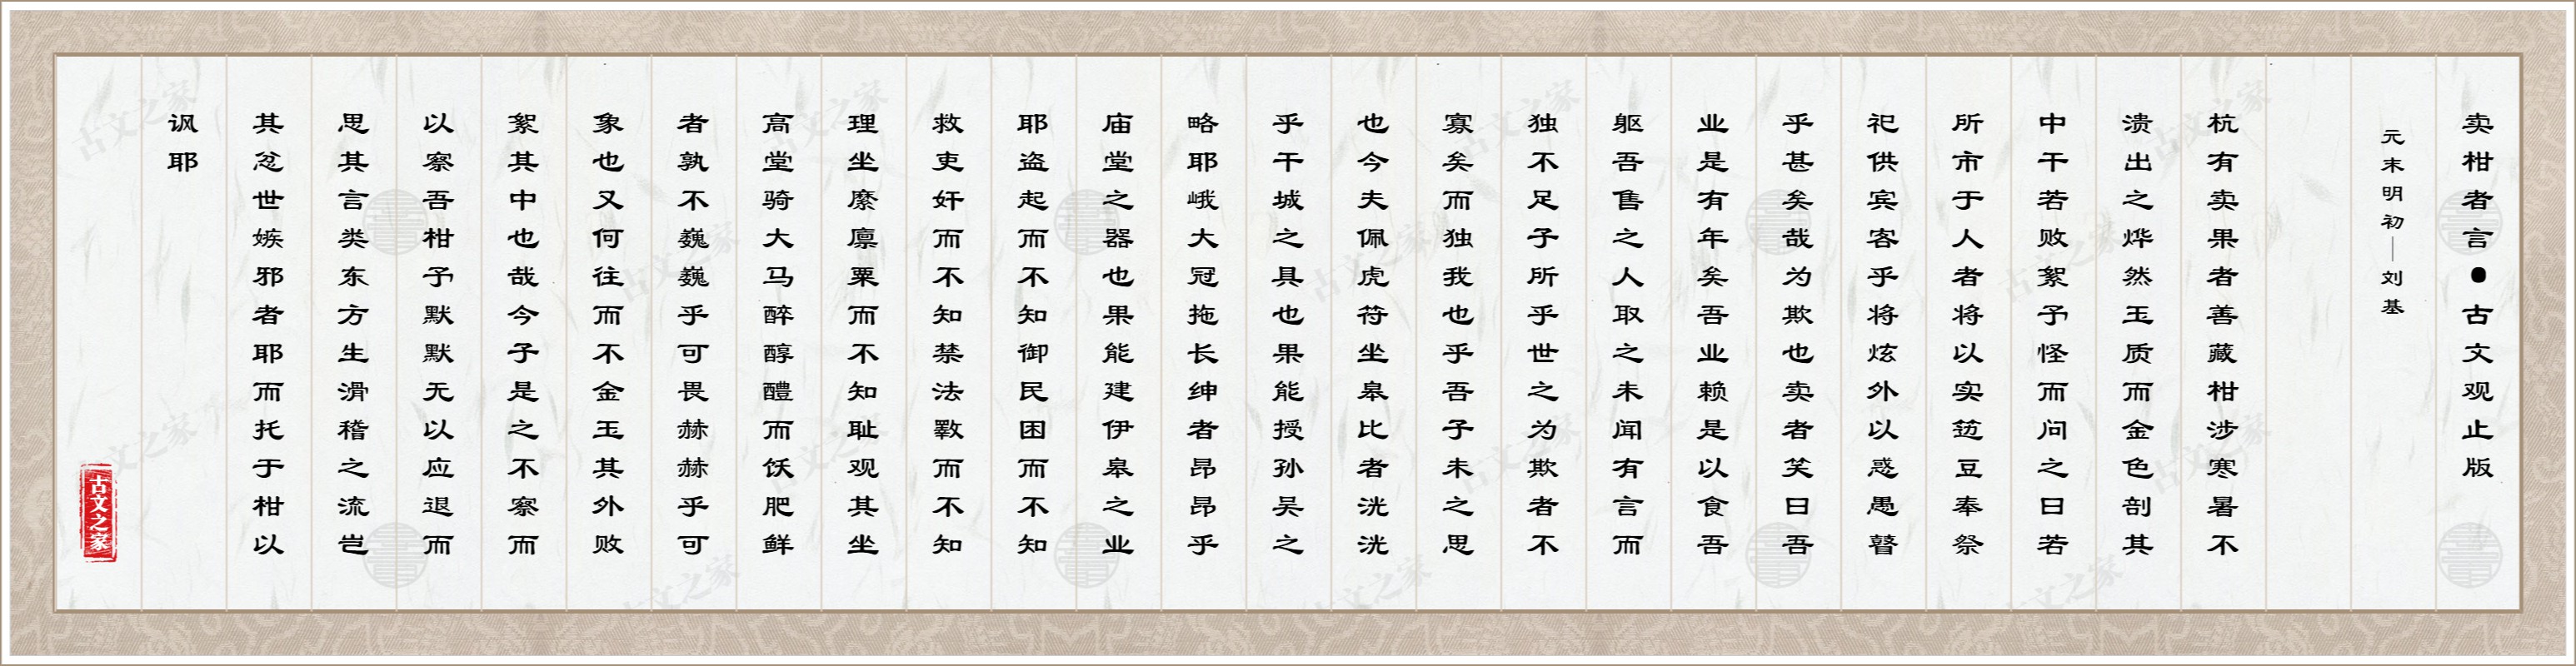 卖柑者言●古文观止版
元末明初—刘基
杭有卖果者善藏柑涉寒暑不
溃出之烨然玉质而金色剖其
中干若败絮予怪而问之曰若
所市于人者将以实笾豆奉祭
祀供宾客乎将炫外以惑愚瞽
乎甚矣哉为欺也卖者笑曰吾
业是有年矣吾业赖是以食吾
躯吾售之人取之未闻有言而
独不足子所乎世之为欺者不
寡矣而独我也乎吾子未之思
也今夫佩虎符坐皋比者洸洸
乎干城之具也果能授孙吴之
略耶峨大冠拖长绅者昂昂乎
庙堂之器也果能建伊皋之业
耶盗起而不知御民困而不知
救吏奸而不知禁法斁而不知
理坐縻廪粟而不知耻观其坐
高堂骑大马醉醇醴而饫肥鲜
者孰不巍巍乎可畏赫赫乎可
象也又何往而不金玉其外败
絮其中也哉今子是之不察而
以察吾柑予默默无以应退而
思其言类东方生滑稽之流岂
其忿世嫉邪者耶而托于柑以
讽耶
古文之家